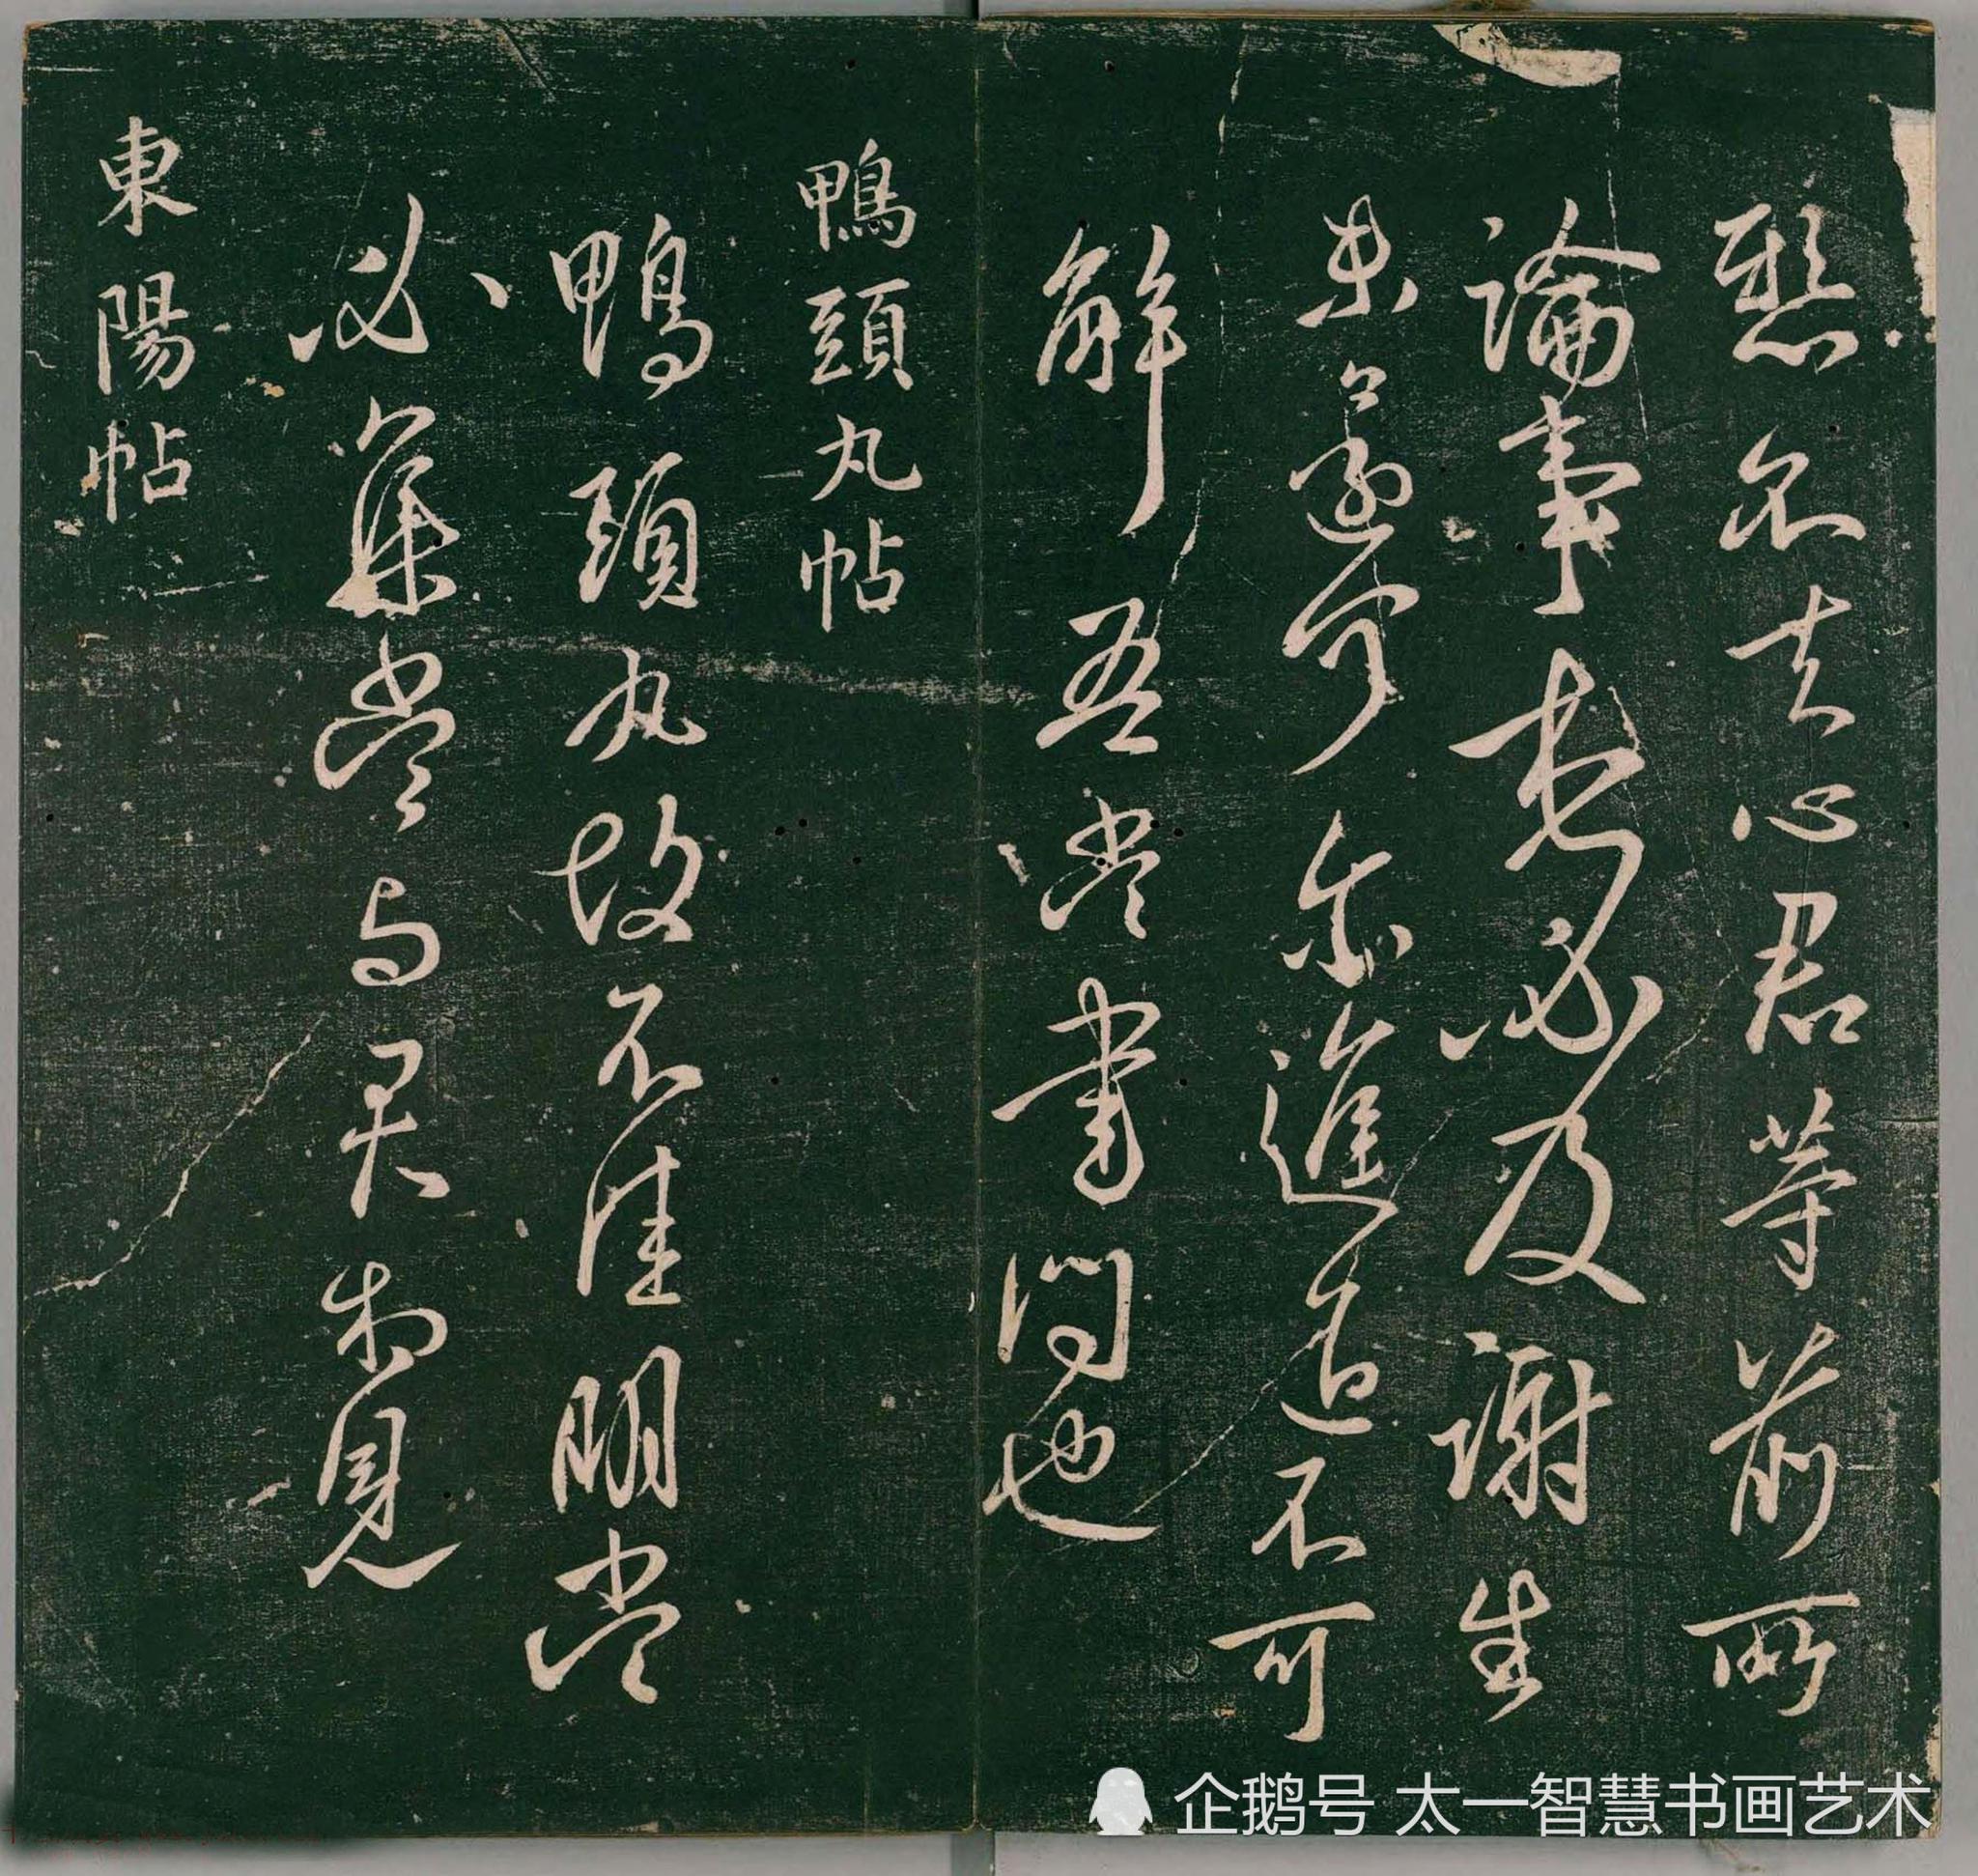 愁不去心君等前所
論事想必及謝生
未還可亦進退不可
解吾當書問也
鴨頭丸帖
鴨頭丸故不佳明當
必集當與君相見
東陽帖
企鹅号 太一智慧书画艺术